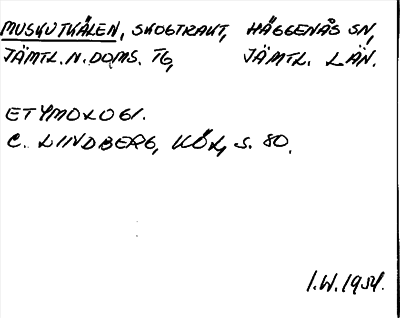 MUSKUTKÅLEN, SKOGTRAKT, HÄGGENÅS SN,
JÄMTL. N. DOMS. TG, JÄMTL. LÄN.
ETYMOLOGI.
C. LINDBERG, KÖL, S. 80.
I.W. 1954.